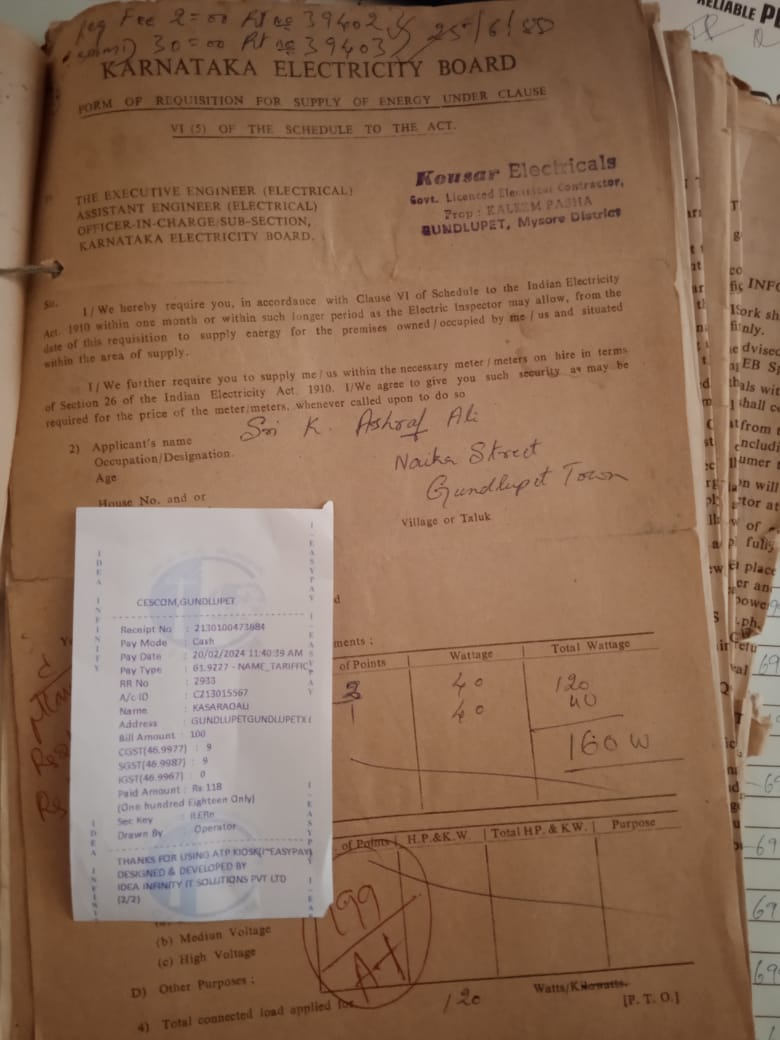 Reg Fee 2=00 Rt no 39402
30=00 Rt no 39403 25/6/88
RELIABLE
KARNATAKA ELECTRICITY BOARD
FORM OF REQUISITION FOR SUPPLY OF ENERGY UNDER CLAUSE
VI (5) OF THE SCHEDULE TO THE ACT.
THE EXECUTIVE ENGINEER (ELECTRICAL)
ASSISTANT ENGINEER (ELECTRICAL)
OFFICER-IN-CHARGE/SUB-SECTION,
KARNATAKA ELECTRICITY BOARD.
Kousar Electricals
Govt. Licenced Electrical Contractor,
Prop: KALEEM PASHA
GUNDLUPET, Mysore District
Sir,
I/We hereby require you, in accordance with Clause VI of Schedule to the Indian Electricity
Act. 1910 within one month or within such longer period as the Electric Inspector may allow, from the
date of this requisition to supply energy for the premises owned/occupied by me/us and situated
within the area of supply.
I/We further require you to supply me/us within the necessary meter/meters on hire in terms
of Section 26 of the Indian Electricity Act. 1910. I/We agree to give you such security as may be
required for the price of the meter/meters, whenever called upon to do so
2) Applicant's name Sri K. Ashraf Ali
Occupation/Designation.
Age
Naika Street
Gundlupet Town
House No. and or
Village or Taluk
CESCOM,GUNDLUPET
Receipt No : 2130100473684
Pay Mode : Cash
Pay Date : 20/02/2024 11:40:39 AM
Pay Type : 61.9227 - NAME_TARIFFC
RR No : 2933
A/c ID : C213015567
Name : KASARAOALI
Address : GUNDLUPETGUNDLUPETX(
Bill Amount : 100
CGST(46.9977) : 9
SGST(46.9987) : 9
IGST(46.9967) : 0
Paid Amount : Rs 118
(One hundred Eighteen Only)
Sec Key :
Drawn By : Operator
THANKS FOR USING ATP KIOSK(I~EASYPAY)
DESIGNED & DEVELOPED BY
IDEA INFINITY IT SOLUTIONS PVT LTD
(2/2)
IDEA INFINITY
I-EASYPAY
ments ;
of Points Wattage Total Wattage
3 40 120
1 40 40
160 W
of Points H.P.&K.W Total HP. & K.W. Purpose
199
A+
(b) Median Voltage
(c) High Voltage
D) Other Purposes ;
4) Total connected load applied for 120 Watts/Kilowatts.
[P. T. O.]